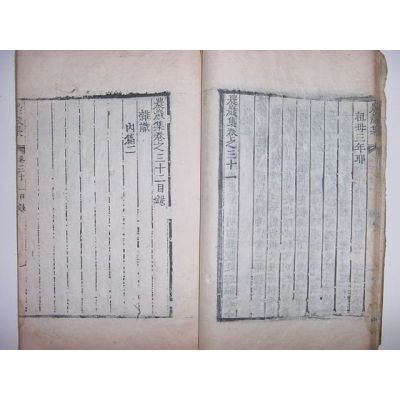 祖母三年耶
農巖集卷之三十一
農巖集卷之三十二目錄
雜識
內篇二